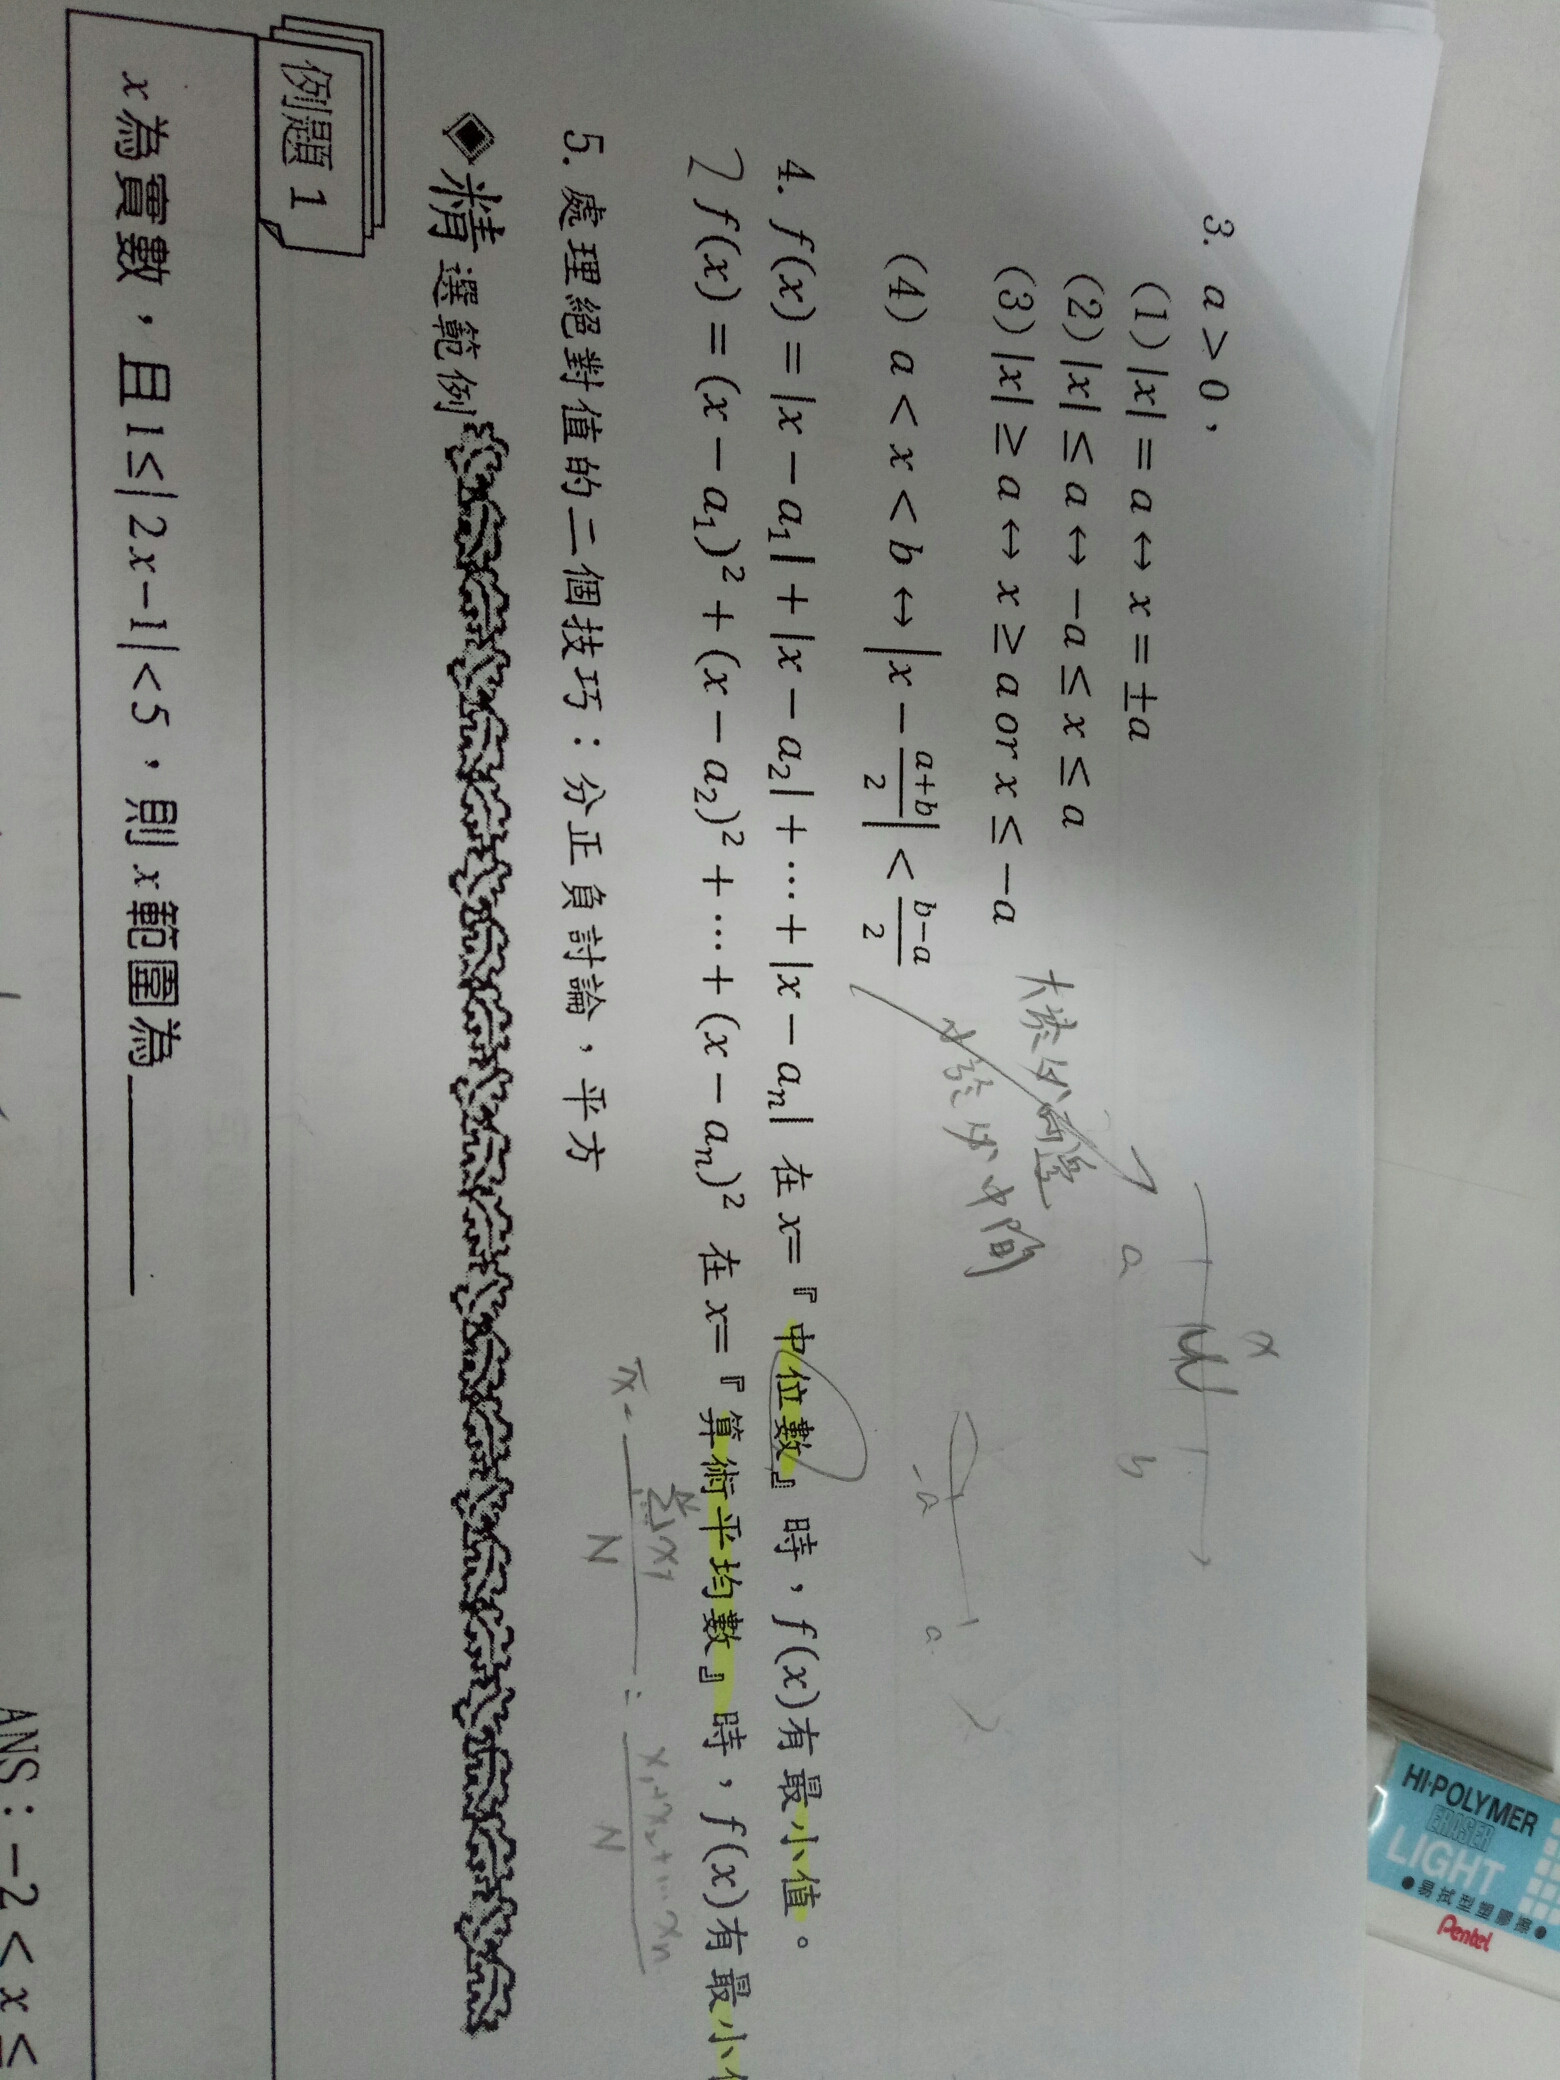 3. a > 0，
(1) |x| = a ↔ x = ±a
(2) |x| ≤ a ↔ −a ≤ x ≤ a
(3) |x| ≥ a ↔ x ≥ a or x ≤ −a
大於分兩邊
(4) a < x < b ↔ |x − \frac{a+b}{2}| < \frac{b−a}{2}
小於分中間
x
a b
-a a
4. f(x) = |x − a₁| + |x − a₂| + ⋯ + |x − aₙ| 在 x=『中位數』時，f(x)有最小值。
f(x) = (x − a₁)² + (x − a₂)² + ⋯ + (x − aₙ)² 在 x=『算術平均數』時，f(x)有最小
N
N
5. 處理絕對值的二個技巧：分正負討論，平方
◆精選範例
例題 1
x 為實數，且 1 ≤ | 2x−1| < 5，則 x 範圍為______
ANS：−2 < x ≤
HI-POLYMER
ERASER
LIGHT
●易拭型塑膠擦●
Pentel